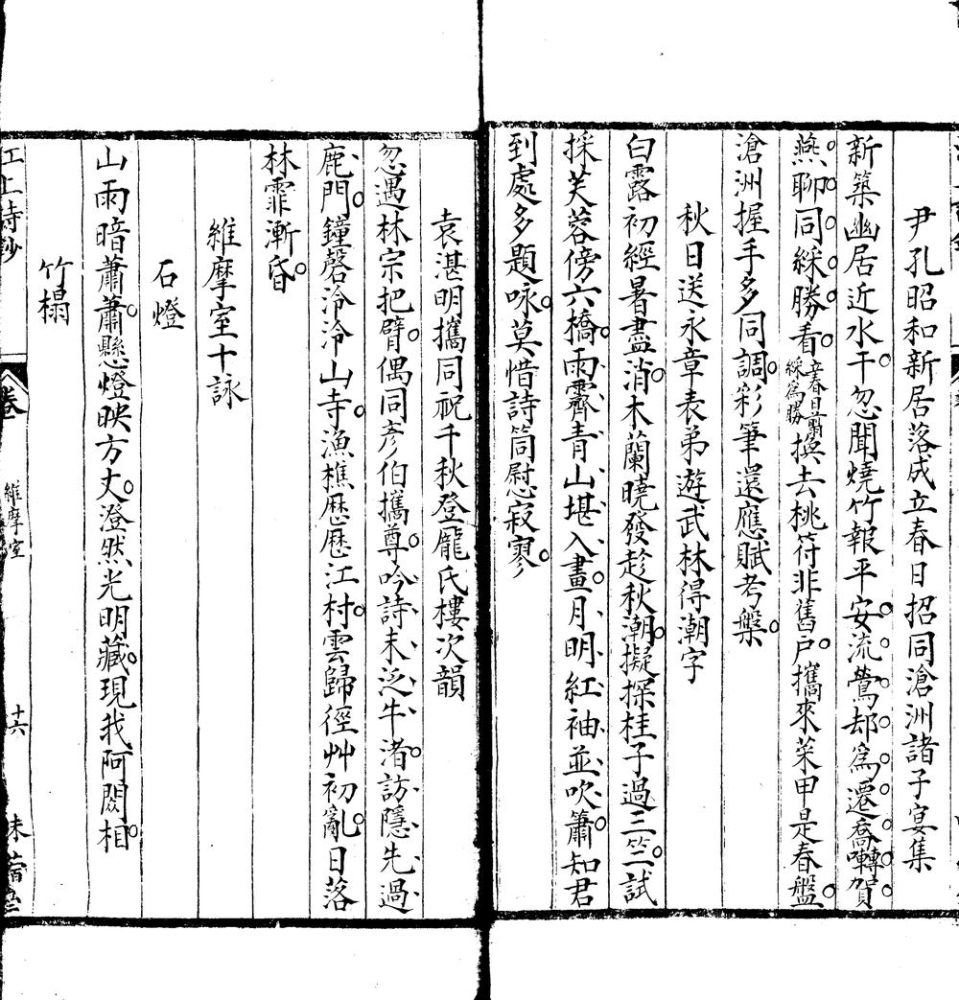 尹孔昭和新居落成立春日招同滄洲諸子宴集
新築幽居近水干。忽聞燒竹報平安。流鶯却爲遷喬囀。賀
燕。聊。同。綵。勝。看。立春日翦綵爲勝換去桃符非舊户。攜來菜甲是春盤。
滄洲握手多同調。彩筆還應賦考槃。
秋日送永章表弟遊武林得潮字
白露初經暑盡消。木蘭曉發趁秋潮。擬探桂子過三竺。試
採芙蓉傍六橋。雨霽青山堪入畫。月明紅袖並吹簫。知君
到處多題咏。莫惜詩筒慰寂寥。
袁湛明攜同祝千秋登龐氏樓次韻
忽遇林宗把臂。偶同彥伯攜尊。吟詩未泛牛渚。訪隱先過
鹿門。鐘磬泠泠山寺。漁樵歷歷江村。雲歸徑艸初亂。日落
林霏漸昏。
維摩室十詠
石燈
山雨暗蕭蕭。懸燈映方丈。澄然光明藏。現我阿閦相。
竹榻
江上詩鈔
卷
維摩室
十六